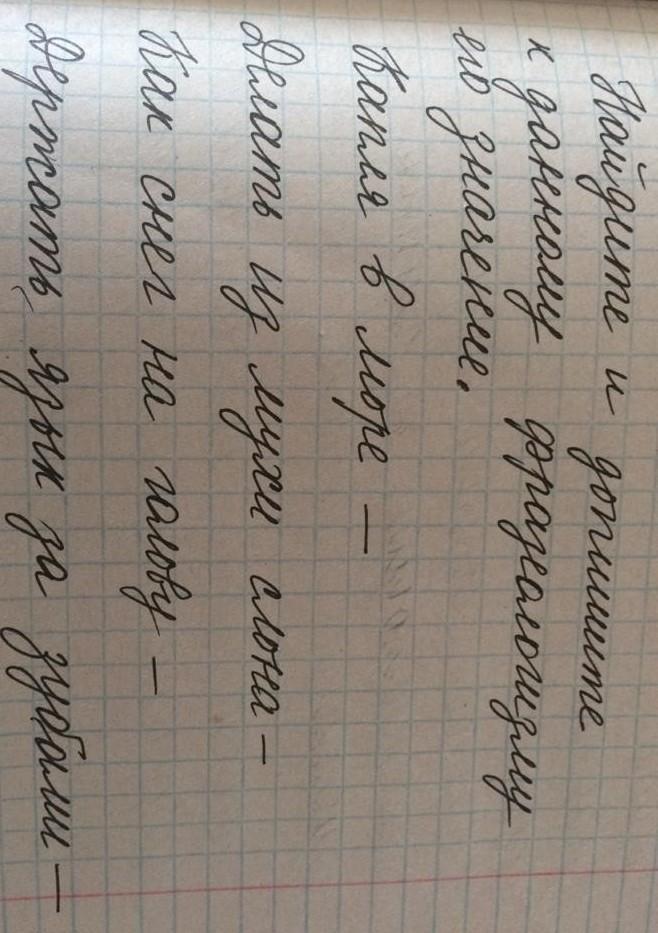 Найдите и допишите
к данному фразеологизму
его значение.
Капля в море –
Делать из мухи слона –
Как снег на голову –
Держать язык за зубами –